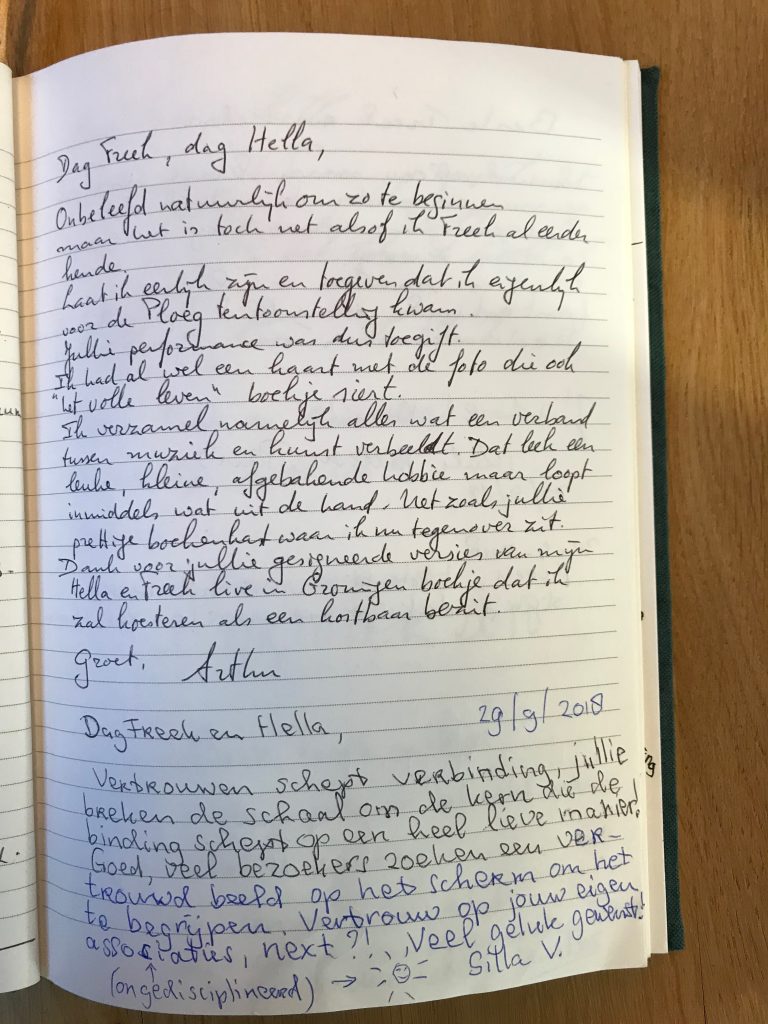 Dag Freek, dag Hella,
Onbeleefd natuurlijk om zo te beginnen
maar het is toch net alsof ik Freek al eerder
kende.
Laat ik eerlijk zijn en toegeven dat ik eigenlijk
voor de Ploeg tentoonstelling kwam.
Jullie performance was dus toegift.
Ik had al wel een kaart met de foto die ook
"het volle leven" boekje siert.
Ik verzamel namelijk alles wat een verband
tussen muziek en kunst verbeeldt. Dat leek een
leuke, kleine, afgebakende hobbie maar loopt
inmiddels wat uit de hand. Net zoals jullie
prettige boekenkast waar ik nu tegenover zit.
Dank voor jullie gesigneerde versies van mijn
Hella en Freek live in Groningen boekje dat ik
zal koesteren als een kostbaar bezit.
Groet, Arthur
29/9/2018
Dag Freek en Hella,
Vertrouwen schept verbinding, jullie
breken de schaal om de kern die de
binding schept op een heel lieve manier!
Goed, veel bezoekers zoeken een ver-
trouwd beeld op het scherm om het
te begrijpen. Vertrouw op jouw eigen
associaties, next?!, Veel geluk gewenst!
(ongedisciplineerd) → Silla V.